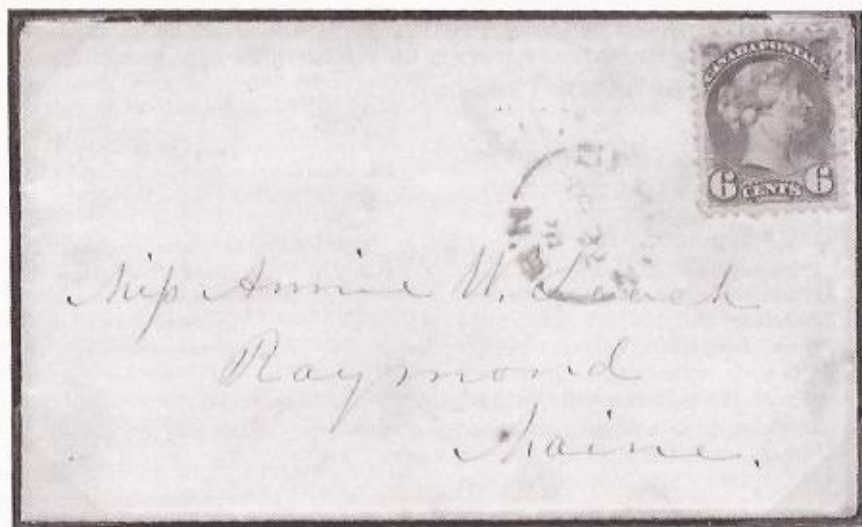 CANADA POSTAGE
6 CENTS 6
Miss Annie W. Leach
Raymond
Maine.